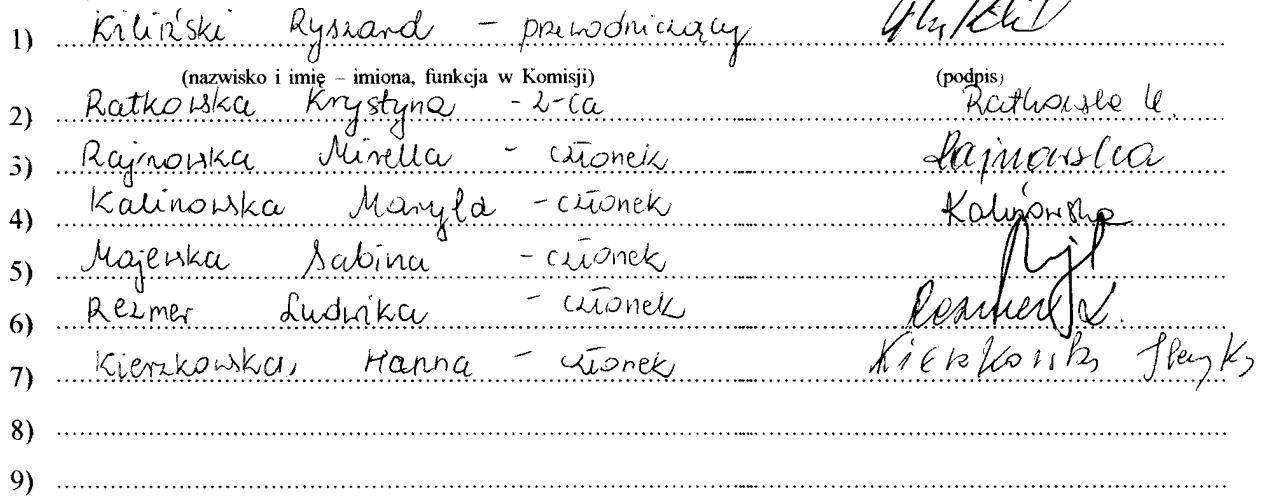 1) Kiliński Ryszard - przewodniczący
(nazwisko i imię – imiona, funkcja w Komisji) (podpis)
2) Ratkowska Krystyna - z-ca Ratkowska K.
3) Rajnowska Mirella - członek Rajnowska
4) Kalinowska Maryla - członek Kalinowska
5) Majewska Sabina - członek
6) Rezmer Ludwika - członek Rezmer L.
7) Kierzkowska, Hanna - członek
8)
9)